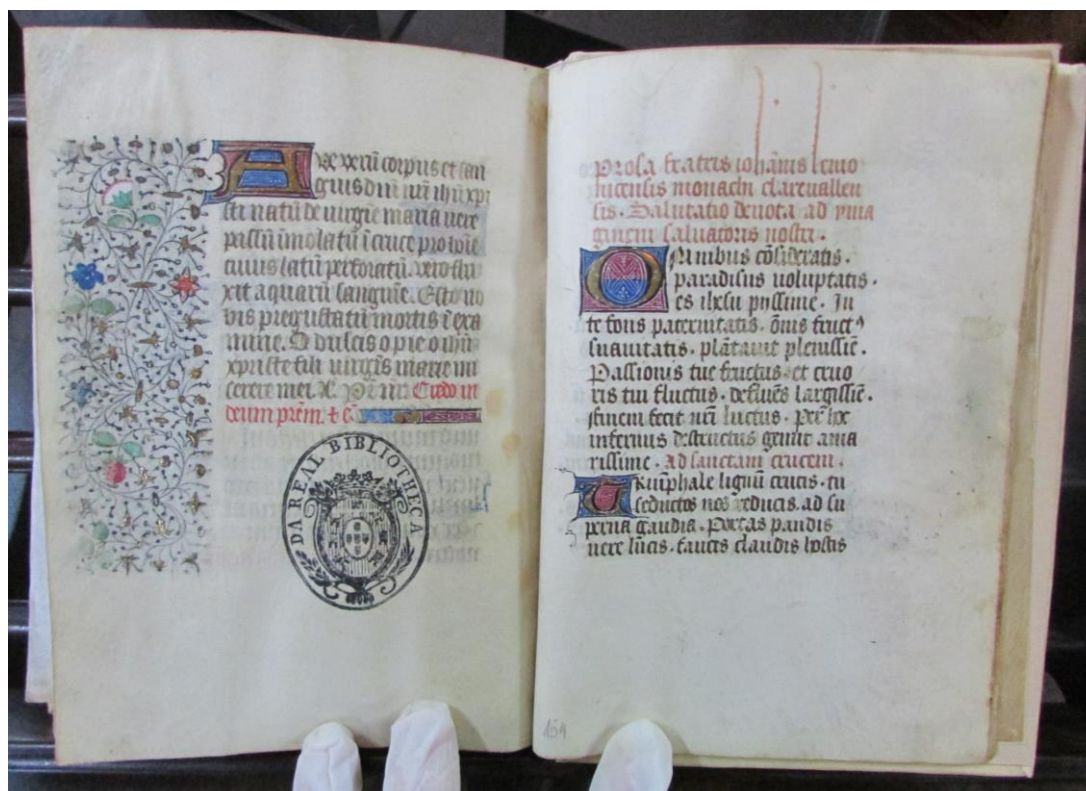 AVe verū corpus et san
guis dnī nr̄i ihū xpi
sti natū de uirgīe maria vere
passū imolatū ī cruce pro hoīe
cuius latū perforatū. vero flu
xit aqua cū sanguīe. Esto no
vis pregustatū mortis ī exa
mine. O dulcis o pie o ihū
xpriste fili uirgīs marie mi
cerere mei. Credo in
deum prēm. + c̄.
DA REAL BIBLIOTHECA
Prosa fratris iohānis
monachi clareuallen
sis. Salutatio deuota ad yma
ginem saluatoris nostri.
OMnibus cōsideratis.
paradisus uoluptatis.
es ihesu pyssime. In
te fons paternitatis. ōnis fruct9
suauitatis. plātauit plenissiē.
Passionis tue fructus. et cruo
ris tui fluctus. defluēs largissiē.
finem fecit nr̄i luctus. per hoc
infernus destructus gemit ama
rissime. Ad sanctam crucem.
TRiūphale lignū crucis. tu
seductos nos reducis. ad su
perna gaudia. Portas pandis
uere lūcis. fauces claudis hostis
154